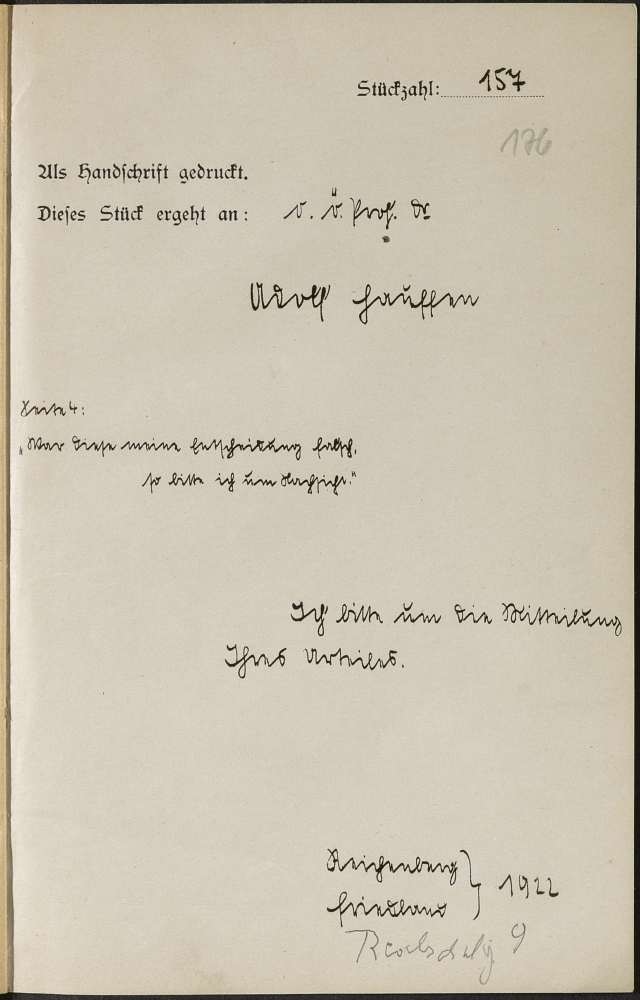 Stückzahl: 157
176
Als Handschrift gedruckt.
Dieses Stück ergeht an: o. ö. Prof. Dr
Adolf Hauffen
Seite 4:
„War diese meine Entscheidung falsch,
so bitte ich um Nachsicht.“
Ich bitte um die Mitteilung
Ihres Urteiles.
Reichenberg
Friedland } 1922